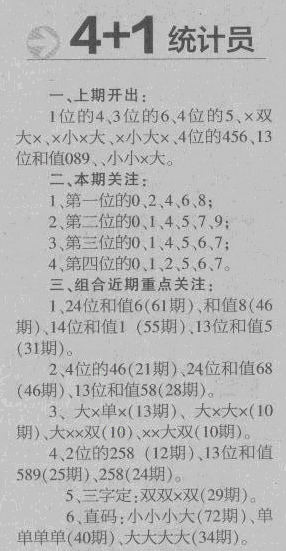 4+1 统计员
一、上期开出：
1位的4、3位的6、4位的5、×双
大×、×小×大、×小大×、4位的456、13
位和值089、、小小×大。
二、本期关注：
1、第一位的0、2、4、6、8；
2、第二位的0、1、4、5、7、9；
3、第三位的0、1、4、5、6、7；
4、第四位的0、1、2、5、6、7。
三、组合近期重点关注：
1、24位和值6(61期)、和值8(46
期)、14位和值1 (55期)、13位和值5
(31期)。
2、4位的46(21期)、24位和值68
(46期)、13位和值58(28期)。
3、大×单×(13期)、大×大×(10
期)、大××双(10)、××大双(10期)。
4、2位的258 (12期)、13位和值
589(25期)、258(24期)。
5、三字定：双双×双(29期)。
6、直码：小小小大(72期)、单
单单单(40期)、大大大大(34期)。